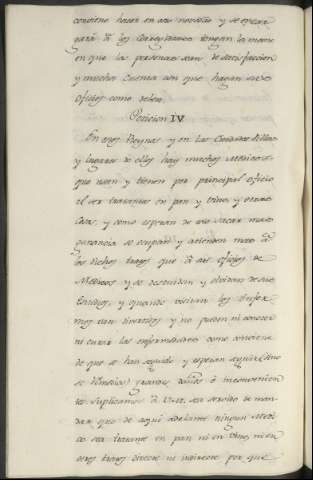 conviene hacer en ello novedad y se encar
gará à los Corregidores tengan la mano
en que las personas sean de satisfaccion
y mucha cuenta con que hagan sus
Oficios como deben.
Peticion IV
En estos Reynos y en las Ciudades Villas
y lugares de ellos hay muchos Medicos
que usan y tienen por principal oficio
el ser tratantes en pan y vino y otras
Cosas, y como esperan de ello sacar mas
ganancia se ocupan y atienden mas à
los dichos tratos que à sus oficios de
Medicos y se descuidan y olvidan de sus
Estudios, y quando visitan los enfer
mos van divertidos y no pueden ni conocer
ni curar las enfermedades como conviene
de que se han seguido y esperan seguir (si no
se remedia) grandes daños è inconvenien
tes suplicamos à V.M. sea servido de man
dar que de aqui adelante ningun Medi
co sea tratante en pan ni en vino, ni en
otros tratos directe ni indirecte por que